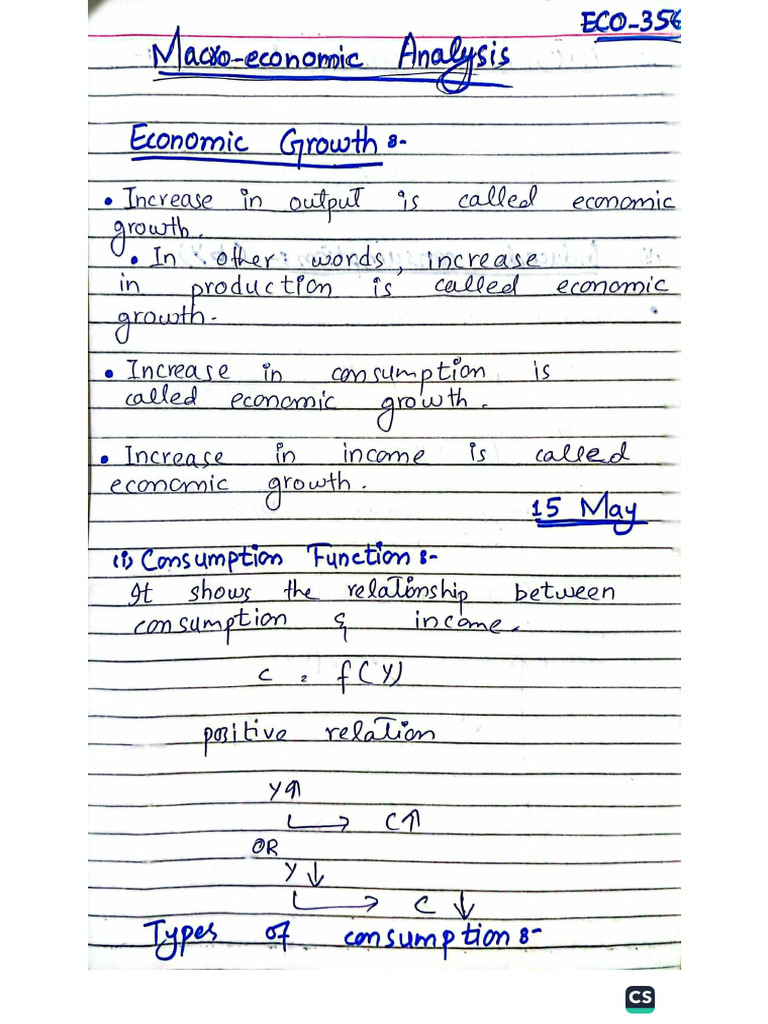 ECO-356
Macro-economic Analysis
Economic Growth :-
• Increase in output is called economic
growth.
• In other words, increase
in production is called economic
growth.
• Increase in consumption is
called economic growth.
• Increase in income is called
economic growth.
15 May
(i) Consumption Function :-
It shows the relationship between
consumption & income.
C = f(Y)
positive relation
Y↑
→ C↑
OR
Y↓
→ C↓
Types of consumption :-
CS